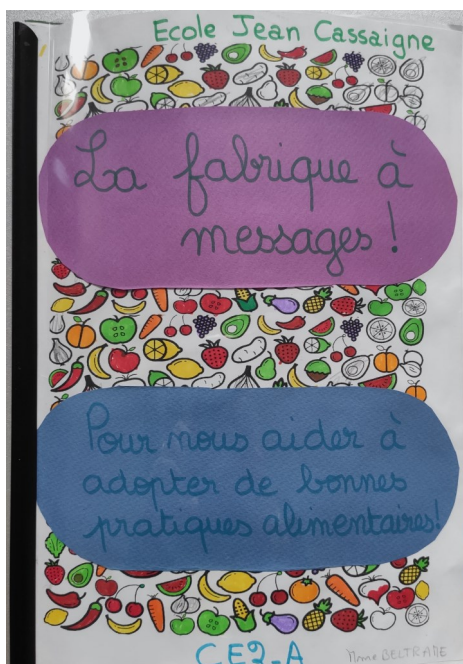 Ecole Jean Cassaigne
La fabrique à
messages !
Pour nous aider à
adopter de bonnes
pratiques alimentaires!
CE2-A
Mme BELTRAME